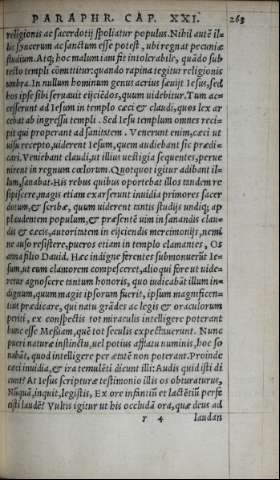 PARAPHR. CAP. XXI. 263
religionis ac sacerdotij spoliatur populus. Nihil autē il-
lic syncerum ac sanctum esse potest, ubi regnat pecuniæ
studium. Atq; hoc malum tam fit intolerabile, quādo sub
tecto templi cōmittitur: quando rapina tegitur religionis
umbra. In nullum hominum genus acrius sæuijt Iesus, sed
hos ipse sibi seruauit eijcēdos, quum uidebitur. Tum ac-
cesserunt ad Iesum in templo cæci & claudi, quos lex ar
cebat ab ingressu templi. Sed Iesu templum omnes reci-
pit qui properant ad sanitatem. Venerunt enim, cæci ut
uisu recepto, uiderent Iesum, quem audiebant sic prædi-
cari. Veniebant claudi, ut illius uestigia sequentes, perue
nirent in regnum cœlorum. Quotquot igitur adibant il-
lum, sanabat. His rebus quibus oportebat illos tandem re
sipiscere, magis etiam exarserunt inuidia primores sacer
dotum, & scribæ, quum uiderent tantis studijs undiq; ap
plaudentem populum, & præsentē uim in sanandis clau-
dis & cæcis, autoritatem in eijciendis mercimonijs, nemi
ne auso resistere, pueros etiam in templo clamantes, Os
anna filio Dauid. Hæc indigne ferentes submonuerūt Ie-
sum, ut eum clamorem compesceret, alioqui fore ut uide-
retur agnoscere tantum honoris, quo iudicabāt illum in-
dignum, quum magis ipsorum fuerit, ipsum magnificen-
tius prædicare, qui natu grādes ac legis & oraculorum
periti, ex conspectis tot miraculis intelligere poterant
hunc esse Meßiam, quē tot seculis expectauerunt. Nunc
pueri naturæ instinctu, uel potius afflatu numinis, hoc so
nabāt, quod intelligere per ætatē non poterant. Proinde
cæci inuidia, & ira temulēti dicunt illi: Audis quid isti di
cunt? At Iesus scripturæ testimonio illis os obturaturus,
Nūquā, inquit, legistis, Ex ore infantiū et lactētiū perfe
cisti laudē? Vultis igitur ut his occludā ora, quæ deus ad
r 4 laudan